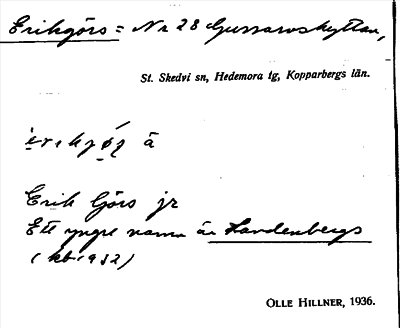 Erikgörs = Nr 28 Gussarvshyttan,
St. Skedvi sn, Hedemora tg, Kopparbergs län.
ä
Erik Görs jr
Ett yngre namn är Landenbergs
(kb 1932)
OLLE HILLNER, 1936.